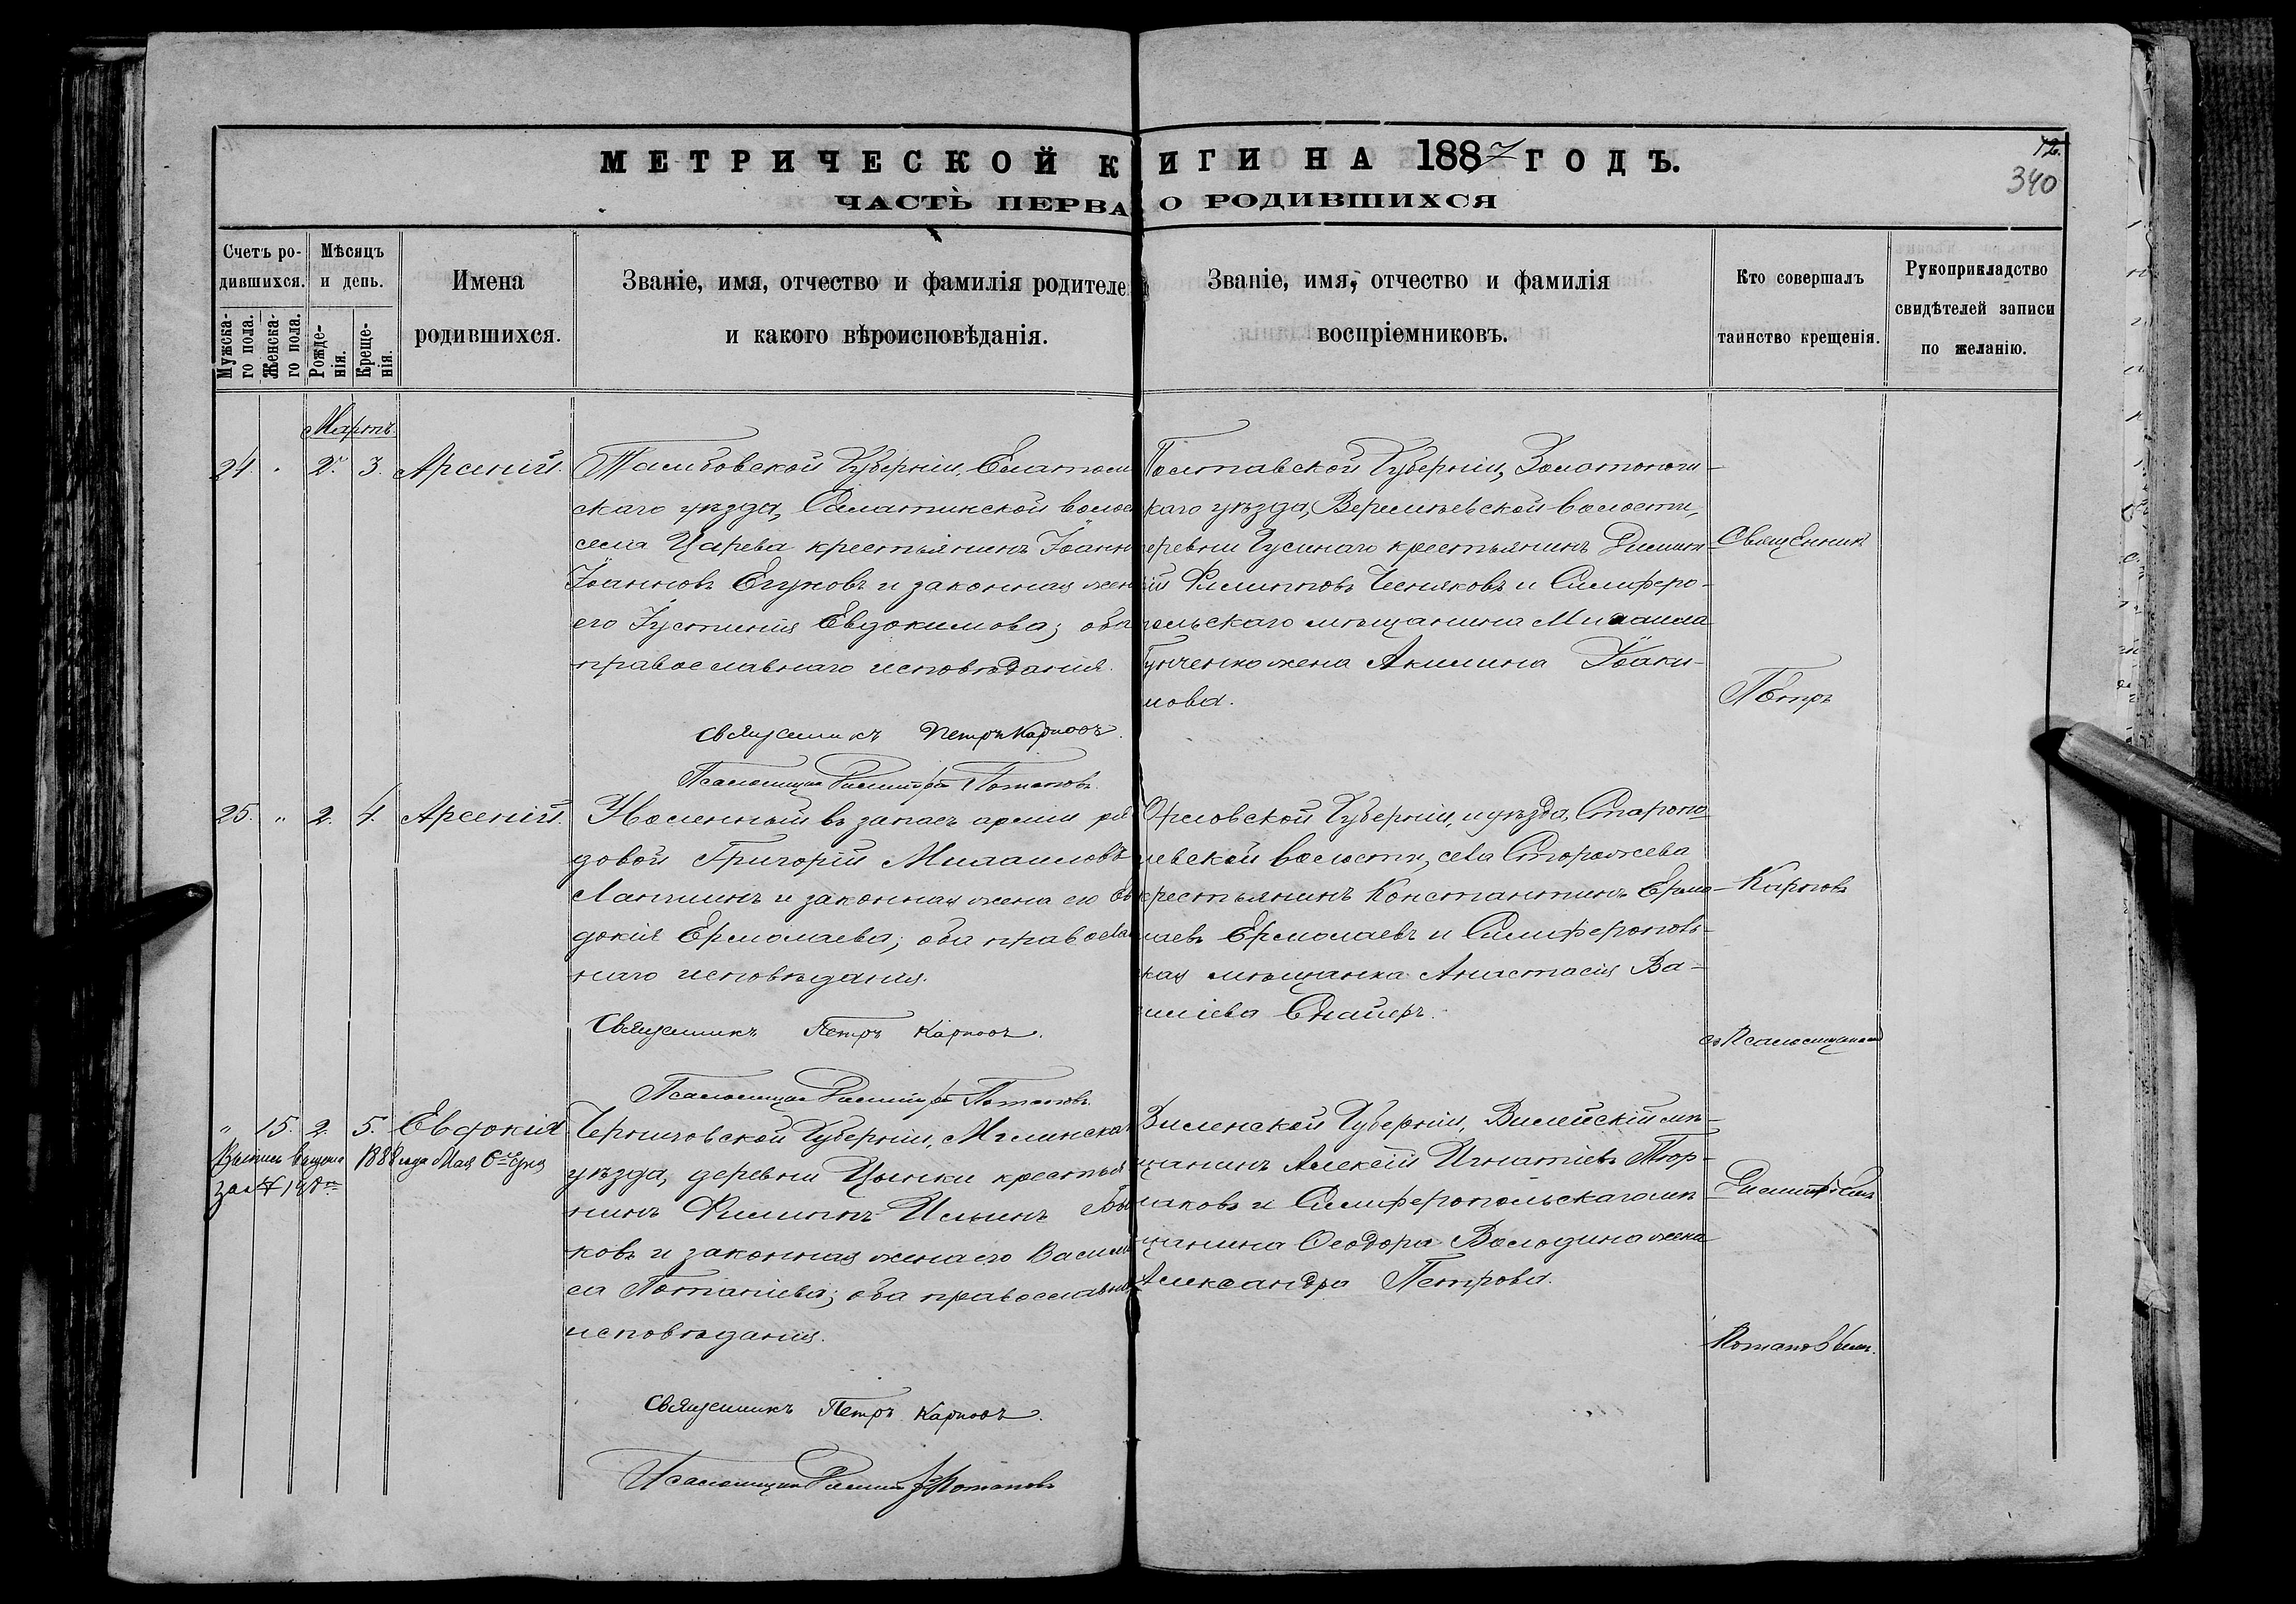 МЕТРИЧЕСКОЙ К ИГИ НА 1887 ГОДЪ.
ЧАСТЬ ПЕРВА О РОДИВШИХСЯ
12.
340
Счетъ родившихся.
Мужска-
го пола.
Женска-
го пола.
Мѣсяцъ
и день.
Рожде-
нія.
Креще-
нія.
Имена
родившихся.
Званіе, имя, отчество и фамилія родителе
и какого вѣроисповѣданія.
Званіе, имя, отчество и фамилія
воспріемниковъ.
Кто совершалъ
таинство крещенія.
Рукоприкладство
свидѣтелей записи
по желанію.
Мартъ.
24. 2. 3. Арсеній.
Тамбовской Губерніи, Елатом
скаго уѣзда, Салатинской волос
села Царева крестьянинъ Іоанн
Іоанновъ Егуновъ и законная жен
его Іустинія Евдокимова; оба
православнаго исповѣданія.
Священникъ Петръ Карповъ.
Псаломщикъ Димитрій Потаповъ.
Полтавской Губерніи, Золотонош-
каго уѣзда, Веремѣевской волости,
еревни Гусинаго крестьянинъ Димит-
ій Филипповъ Чесняковъ и Симферо-
польскаго мѣщанина Михаила
жена Акилина Іоаки-
мова.
25. " 2. 4. Арсеній.
Уволенный въ запасъ арміи ря
довой Григорій Михаиловъ
Лапшинъ и законная жена его Ев
докія Ермолаева; оба православ
наго исповѣданія.
Священникъ Петръ Карповъ.
Псаломщикъ Димитрій Потаповъ.
Орловской Губерніи, и уѣзда,
левской волости, села Сторожева
крестьянинъ Константинъ Ермо-
лаевъ Ермолаевъ и Симферополь-
кая мѣщанка Анастасія Ва-
силіева Снайеръ.
" 15. 2. 5. Евдокія
Выпись выдана 1888 года Мая 6го дня
за № 148м
Черниговской Губерніи, Мглинска
уѣзда, деревни Цынки крестья
нинъ Филиппъ Ильинъ Бы
ковъ и законная жена его Васили
са Потапіева; оба православна
исповѣданія.
Священникъ Петръ Карповъ.
Псаломщикъ Димитрій Потаповъ
Виленской Губерніи, Вилейскій мѣ-
щанинъ Алексій Игнатіевъ Тюр-
маковъ и Симферопольскаго мѣ
щанина Ѳеодора Володина жена
Александра Петрова.
Священникъ
Петръ
Карповъ
съ Псаломщикомъ
Димитріемъ
Потаповымъ.